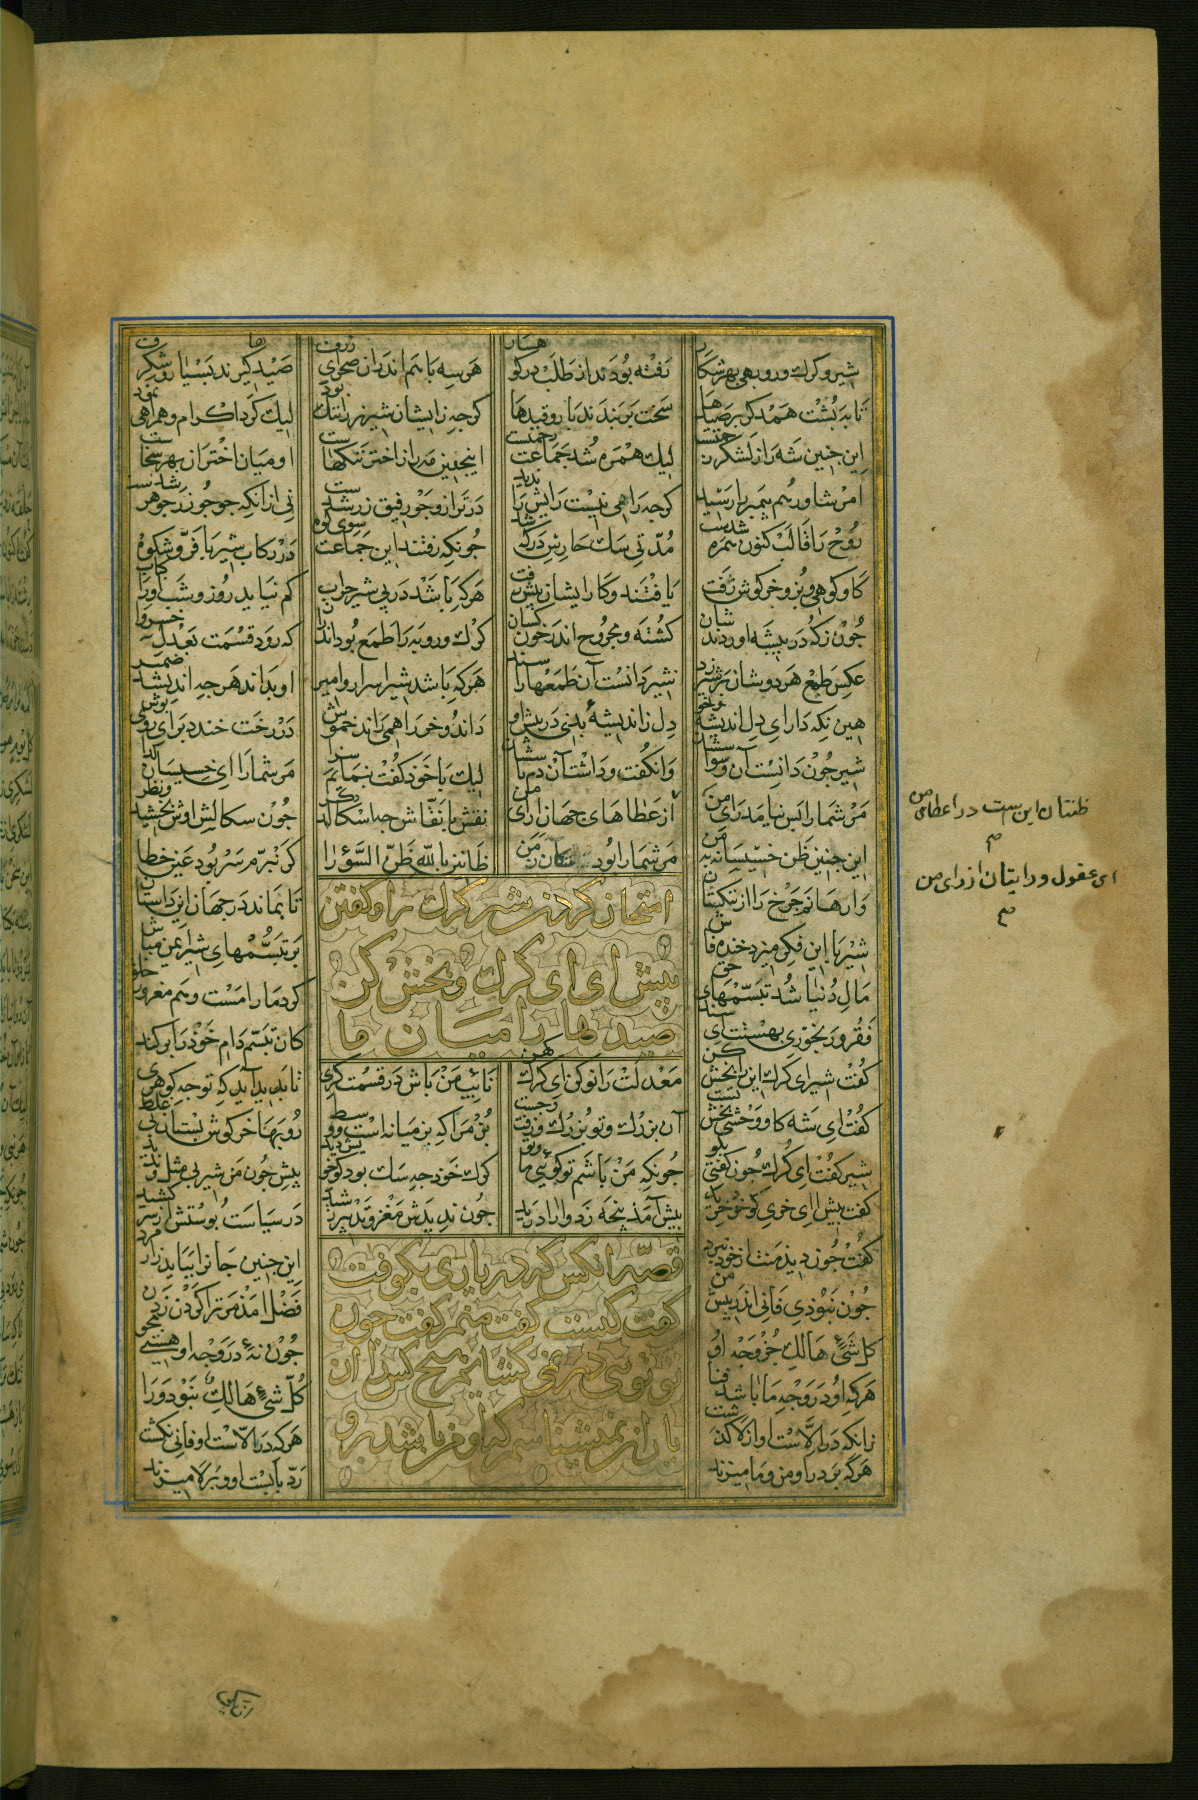 شیر و گرک و روبهی بهر شکار رفته بودند از طلب در کوهسار هر سه با هم اندران صحرای ژرف صیدها گیرند بسیار و شگرف
تا به پشت همدگر بر صیدها سخت بربندند بار و قیدها گرچه زایشان شیر نر را ننگ بود لیک کرد اکرام و همراهی نمود
این چنین شه را ز لشکر زحمتست لیک همره شد جماعت رحمتست اینچنین مه را ز اختر ننگهاست او میان اختران بهر سخاست
امر شاورهم پیمبر را رسید گرچه رایی نیست رایش را ندید در ترازو جو رفیق زر شدست نی از آنکه جو چو زر جوهر شدست
روح با قالب کنون همره شدست مدتی سک حارس درگه شدست چونکه رفتند این جماعت سوی کوه در رکاب شیر با فر و شکوه
گاو کوهی و بز و خرگوش زفت یافتند و کار ایشان پیش رفت هرکه باشد در پی شیر حراب کم نیاید روز و شب ورا کباب
چون ز که در بیشه آوردندشان کشته و مجروح اندر خون کشان گرگ و روبه را طمع بود اندران که رود قسمت بعدل خسروان
عکس طمع هر دوشان بر شیر زد شیر دانست آن طمعها را سند هرکه باشد شیر اسرار و امیر او بداند هرچه اندیشد ضمیر
هین نگه دار ای دل اندیشه خو دل ز اندیشه بدی در پیش او داند و خر را همی راند خموش در رخت خندد برای روی پوش
شیر چون دانست آن وسواسشان وانگفت و داشت آن دم پاسشان لیک با خود گفت بنمایم سزا مر شما را ای خسیسان گدا
مر شما را بس نیامد رای من از عطاهای جهان آرای من نقش با نقاش چه اسگالد دگر چون سگالش اوش بخشید و نظر
این چنین ظن خسیسانه بمن مر شما را بود ننگان زمن ظانین بالله ظن السوء را گر نبرم سر بود عین خطا
امتحان کردن شیر گرگ را و گفتن
پیش آی ای گرگ و بخش کن
صیدها را میان ما
وارهانم چرخ را از ننگتان تا بماند در جهان این داستان
شیر با این فکر میزد خنده فاش بر تبسمهای شیر ایمن مباش
مال دنیا شد تبسمهای حق کرد ما را مست و هم مغرور خلق
فقر و رنجوری بهستت ای سند کان تبسم دام خود را برکند
گفت شیر ای گرگ این را بخش کن معدلت را نو کن ای گرگ کهن نائب من باش در قسمت گری تا پدید آید که تو چه گوهری
گفت ای شه گاو وحشی بخش تست آن بزرگ و تو بزرگ و زفت و چست بز مرا که بز میانه است و وسط روبها خرگوش بستان بی غلط
شیر گفت ای گرگ چون گفتی بگو چونکه من باشم تو گویی ما و تو گرگ خود چه سگ بود کو خویش دید پیش چون من شیر بی مثل و ندید
گفت پیش آ ای خری کو خود خرید پیش آمد پنجه زد او را درید چون ندیدش مغز و تدبیر رشید در سیاست پوستش از سر کشید
قصه آنکس که در یاری بکوفت
گفت کیست گفت منم گفت چون
تو تویی در نمی گشایم هیچ کس را از
یاران نمیشناسم که او من باشد برو
گفت چون دید منت از خود نبرد این چنین جان را بباید زار مرد
چون نبودی فانی اندر پیش من فضل آمد مر ترا گردن زدن
کل شیء هالک جز وجه او چون نه در وجه او هستی مجو
هرکه او در وجه ما باشد فنا کل شیء هالک نبود ورا
زانکه در الاست او از لا گذشت هرکه در الاست او فانی نگشت
هرکه بر در او من و ما میزند رد بابست او و بر لا میزند
ظنتان این است در اعطای من
صح
ای عقول و رایتان از رای من
صح